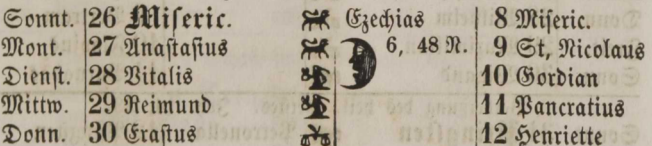 Sonnt. 26 Miseric. Ezechias 8 Miseric.
Mont. 27 Anastasius 6, 48 N. 9 St, Nicolaus
Dienst. 28 Vitalis 10 Gordian
Mittw. 29 Reimund 11 Pancratius
Donn. 30 Erastus 12 Henriette